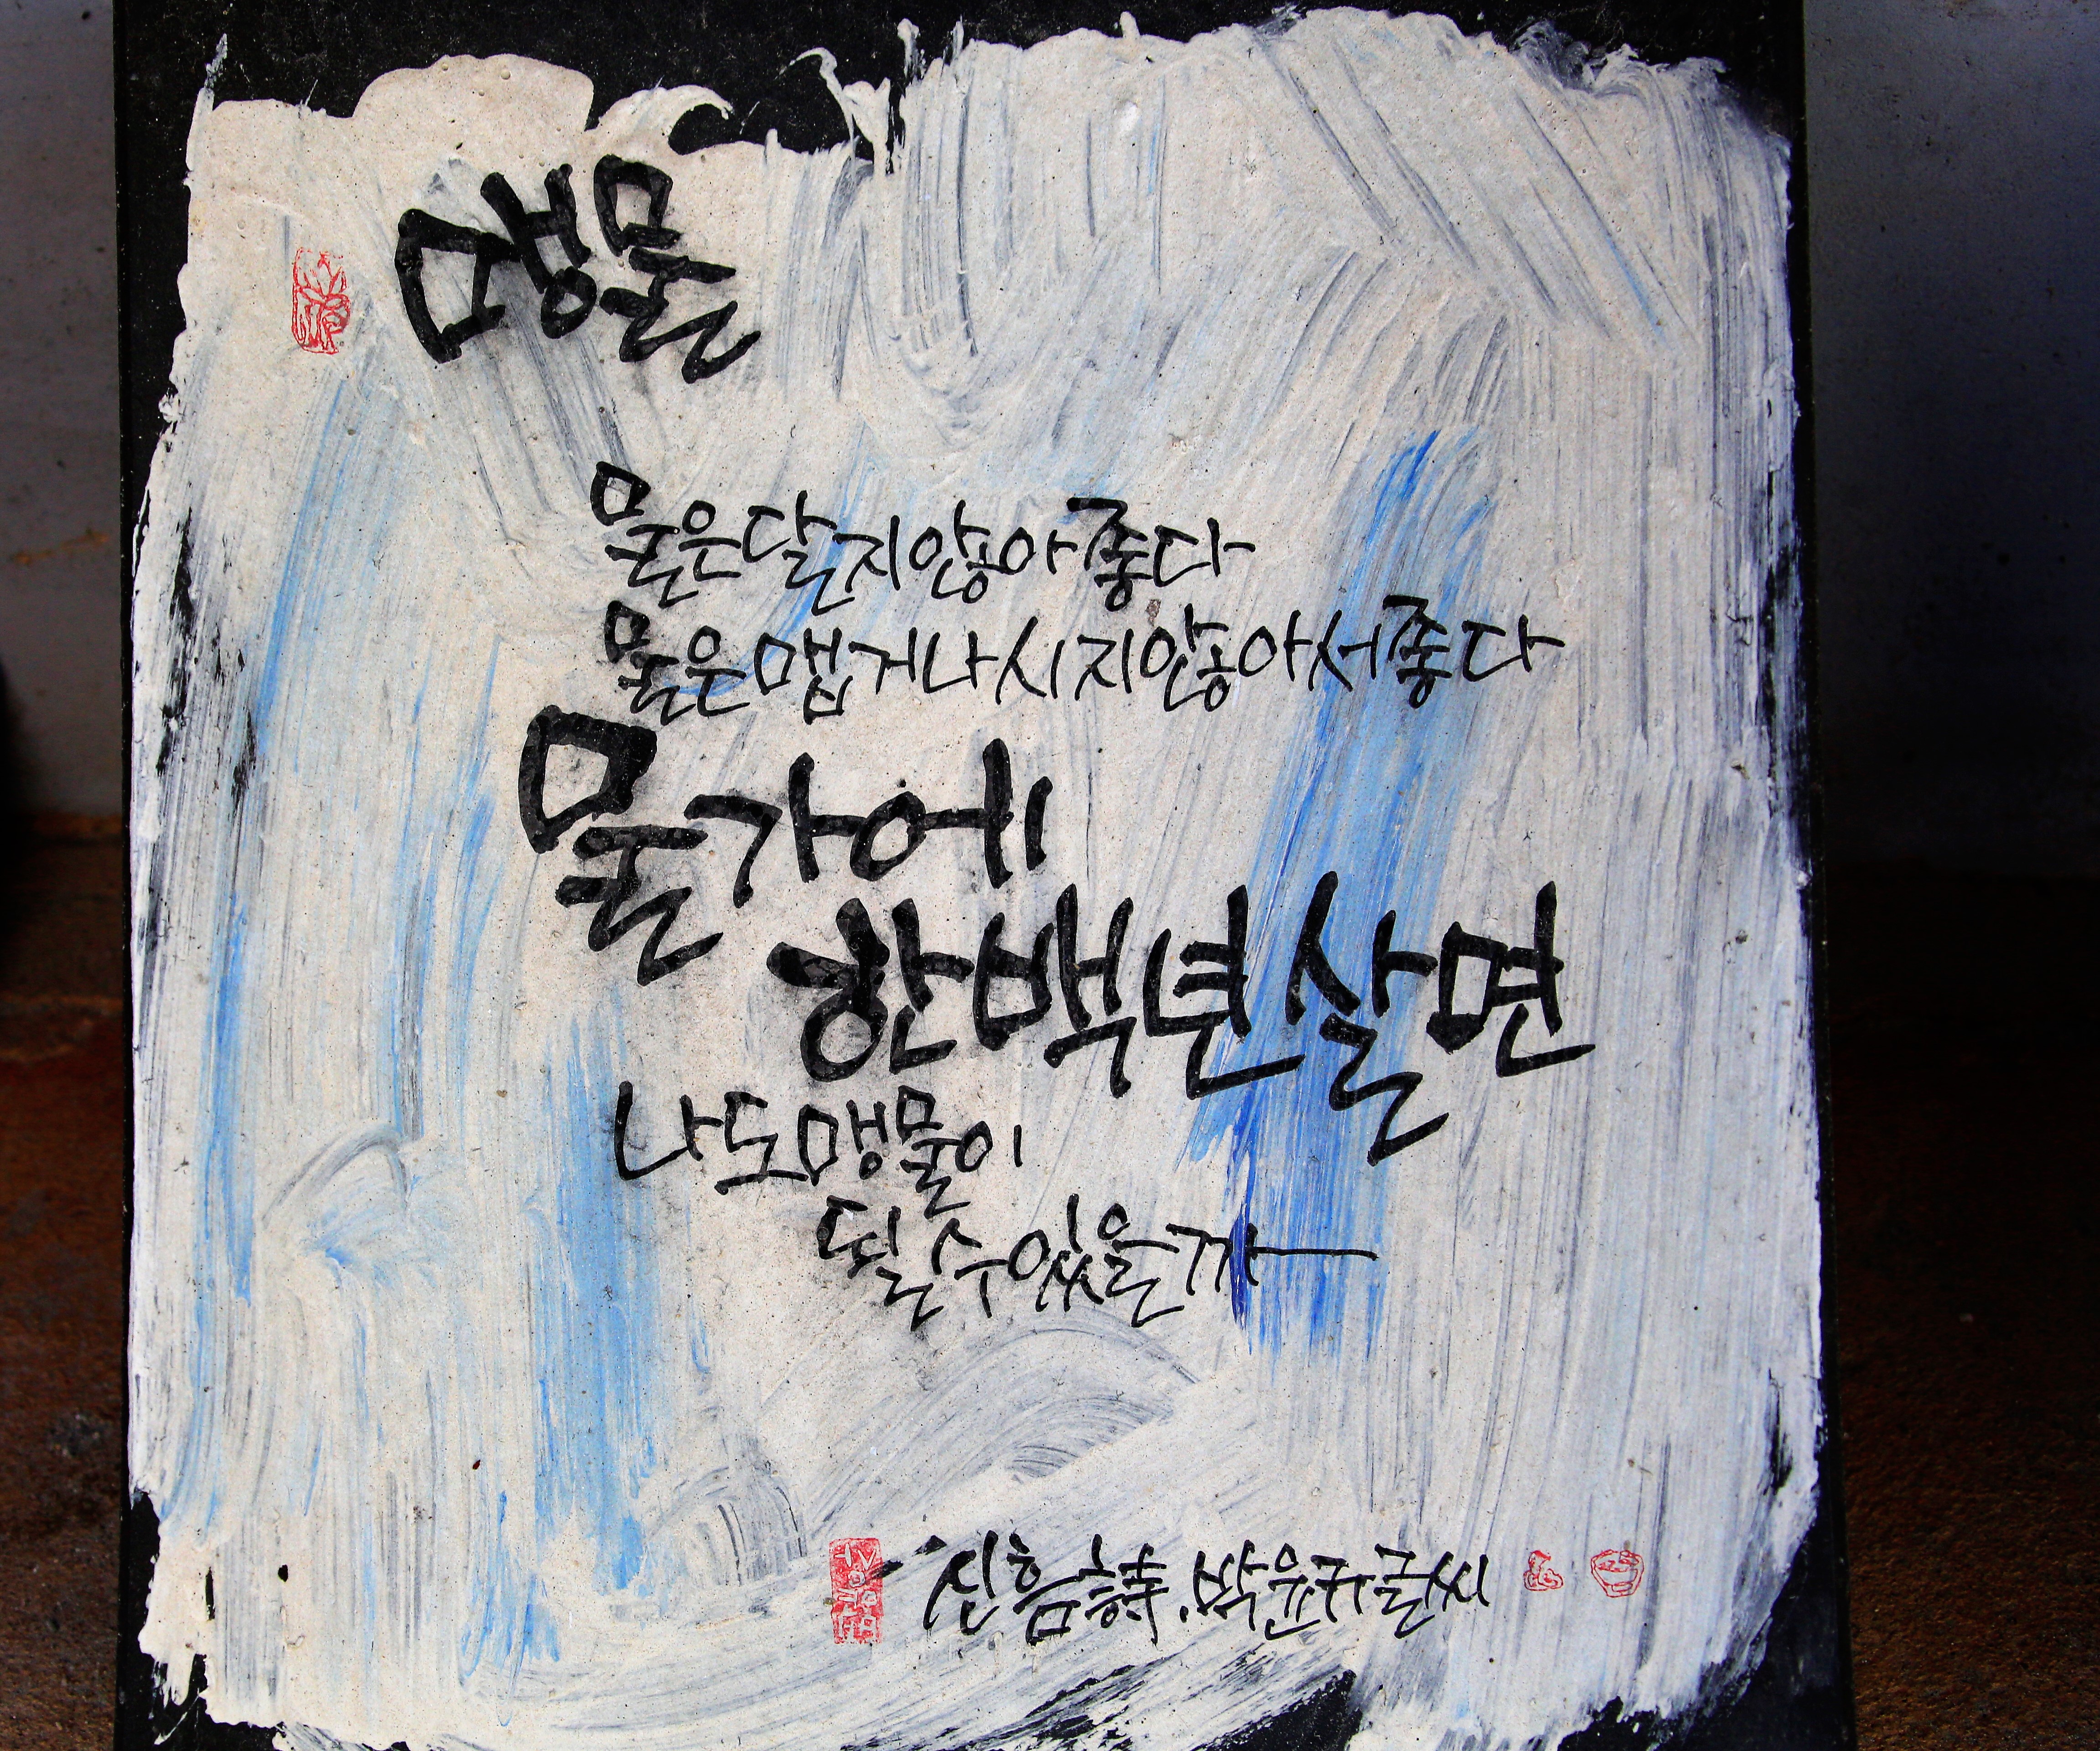 맹물
물은 달지 않아 좋다
물은 맵거나 시지 않아서 좋다
물가에
한 백년 살면
나도 맹물이
될 수 있을까
신흠 詩. 박윤규 글씨